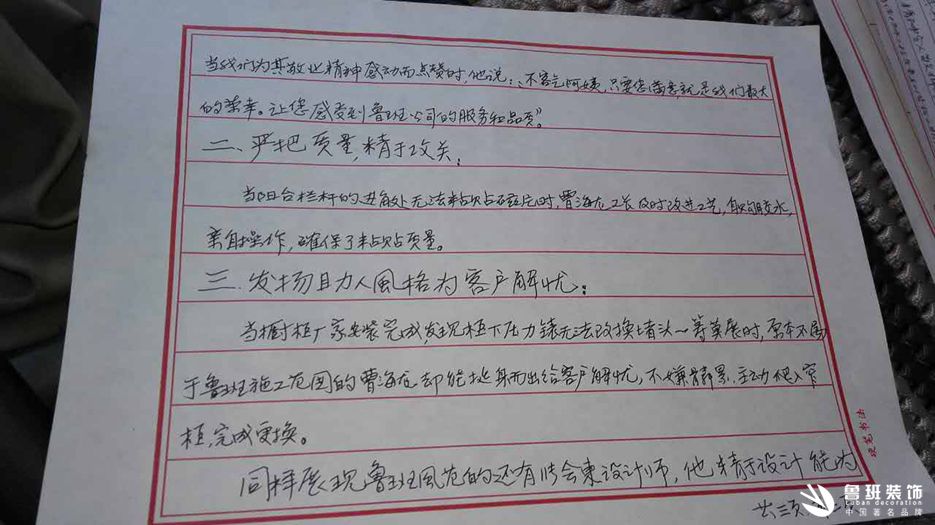 当我们为其敬业精神感动而点赞时,他说:“不客气阿姨,只要您满意就是我们最大
的荣幸。让您感受到鲁班公司的服务和品质。”
二、严把质量,精于攻关:
当阳台栏杆的边角处无法粘贴磁片时,曹海龙工长及时改进工艺,自购胶水,
亲自操作,确保了粘贴质量。
三.发扬助人風格为客户解忧:
当橱柜厂家安装完成,发现柜下压力表无法改换堵头一筹莫展时,原本不属
于鲁班施工范围的曹海龙却能挺身而出给客户解忧,不嫌脏累,主动爬入窄
柜,完成更换。
同样展现鲁班風范的还有 会東设计师,他精于设计能为
共三页
硬笔书法
鲁班装饰
Luban decoration
中国著名品牌